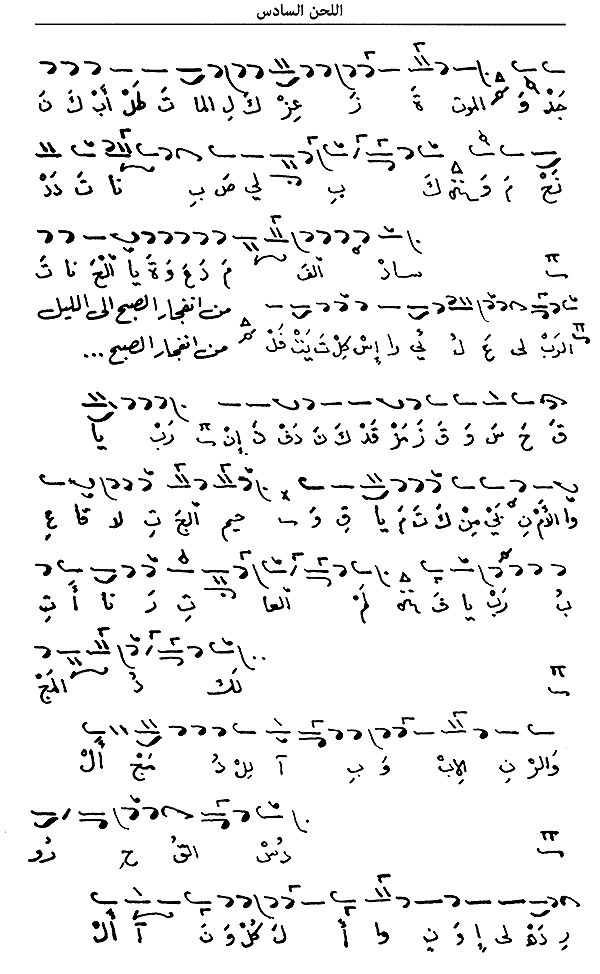 اللحن السادس
وَ الموت ةَ زَ عِزْ كَ لِ الما تَ طَلْ أَبْ كَ نَ
نَحْ مَ وَ كَ بِ لي صَ بِ نا تَ دَدْ
ألفَ مَ دَعَ وَ ةَ يا نا تَ
من انفجار الصبح الى الليل
الرَبْ لى عَ لُ ئي را إِسْ كِلْ تَ يَتْ فَلْ من انفجار الصبح ...
قَ حَ سَ وَ قَ زَ مَزْ قَدْ كَ نَ دَقْ ذَ إِنْ رَبْ يا
وَا الأَمْ نِ بَيْ مِنْ كَ تَ مَ يا قِ وَ حيم ألجَ تِ لا قا عِ
بُ رَبْ يا لَمْ ألعا تِ رَ نا أَ تِ
لَكَ دُ المَجْ
وَالرْ نِ الإِبْ وَ بِ آ لِلْ دُ مَجْ أَلْ
دُسْ القُ حِ رُو
رِ دَهْ لى إِ وَ نِ وا أَ لَ كُلْ وَ نَ آ أَلْ